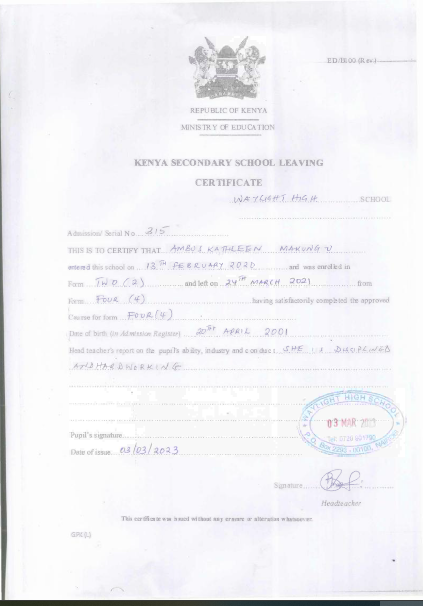 ED/IX.00 (Rev.)
REPUBLIC OF KENYA
MINISTRY OF EDUCATION
KENYA SECONDARY SCHOOL LEAVING
CERTIFICATE
WAYLIGHT HIGH SCHOOL
Admission/ Serial No. 215
THIS IS TO CERTIFY THAT AMBUI KATHLEEN
entered this school on 13TH FEBRUARY 2020 and was enrolled in
Form TWO (2) and left on 24TH MARCH 2021 from
Form FOUR (4) having satisfactorily completed the approved
Course for form FOUR(4)
Date of birth (in Admission Register) 20ST APRIL 2001
Head teacher's report on the pupil's ability, industry and conduct SHE IS
AND HARDWORKING
WAYLIGHT HIGH SCHOOL
03 MAR 2023
P.O. Box
Pupil's signature
Date of issue 03/03/2023
Signature
Headteacher
This certificate was issued without any erasure or alteration whatsoever.